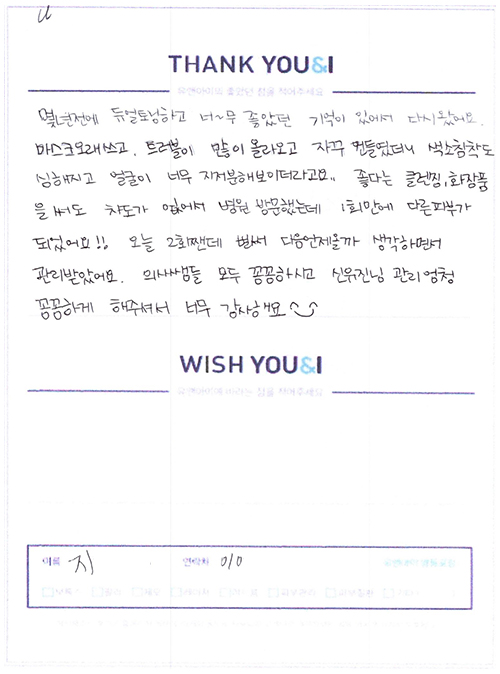 THANK YOU&I
유앤아이의 좋았던 점을 적어주세요
몇년전에 듀얼토닝하고 너~무 좋았던 기억이 있어서 다시왔어요.
마스크오래쓰고, 트러블이 많이 올라오고 자꾸 만들었더니 색소침착도
심해지고 얼굴이 너무 지저분해보이더라고요.. 좋다는 클렌징, 화장품
을 써도 차도가 없어서 병원 방문했는데 1회만에 다른피부가
되었어요!! 오늘 2회짼데 벌써 다음언제올까 생각하면서
관리받았어요. 의사쌤들 모두 꼼꼼하시고 신유진님 관리 엄청
꼼꼼하게 해주셔서 너무 감사해요
WISH YOU&I
유앤아이에 바라는 점을 적어주세요
이름 지 연락처 010